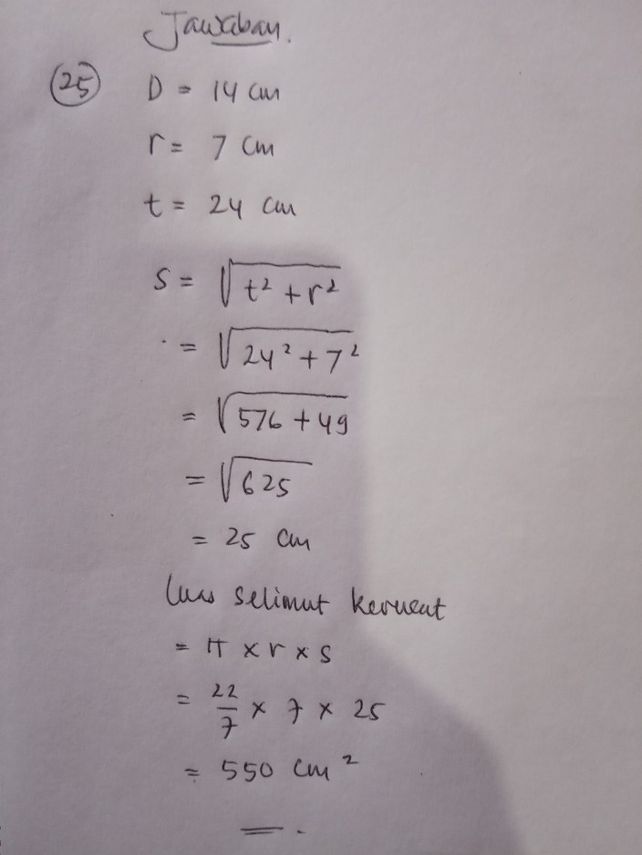 Jawaban.
(25) D = 14 cm
r = 7 cm
t = 24 cm
S = √t² + r²
= √24² + 7²
= √576 + 49
= √625
= 25 cm
luas selimut kerucut
= π x r x s
= 22/7 x 7 x 25
= 550 cm²